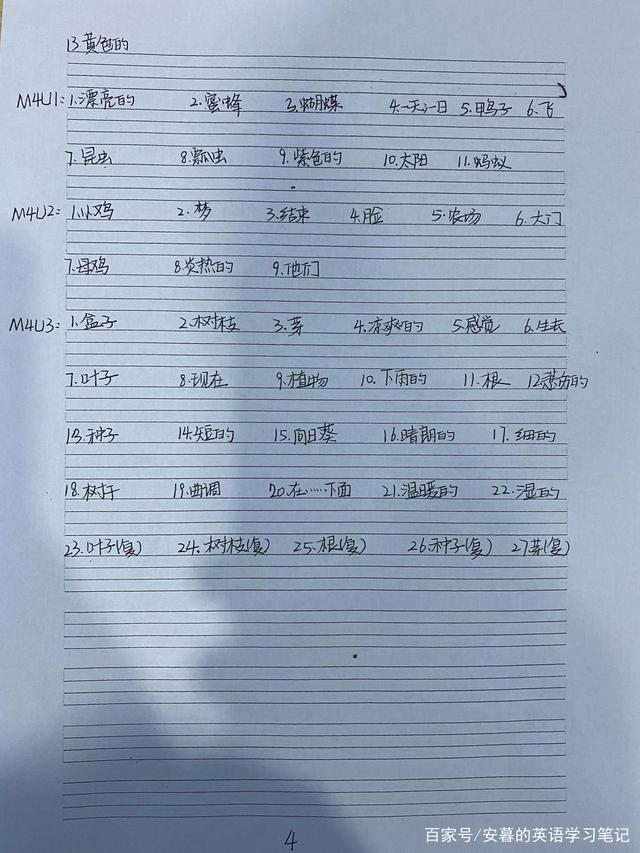 13.黄色的
M4U1: 1.漂亮的 2.蜜蜂 3.蝴蝶 4.一天;一日 5.鸭子 6.飞
7.昆虫 8.瓢虫 9.紫色的 10.太阳 11.蚂蚁
M4U2: 1.小鸡 2.梦 3.结束 4.脸 5.农场 6.大门
7.母鸡 8.炎热的 9.他们
M4U3: 1.盒子 2.树枝 3.芽 4.凉爽的 5.感觉 6.生长
7.叶子 8.现在 9.植物 10.下雨的 11.根 12.悲伤的
13.种子 14.短的 15.向日葵 16.晴朗的 17.细的
18.树干 19.曲调 20.在……下面 21.温暖的 22.湿的
23.叶子(复) 24.树枝(复) 25.根(复) 26.种子(复) 27.芽(复)
4
百家号/安暮的英语学习笔记